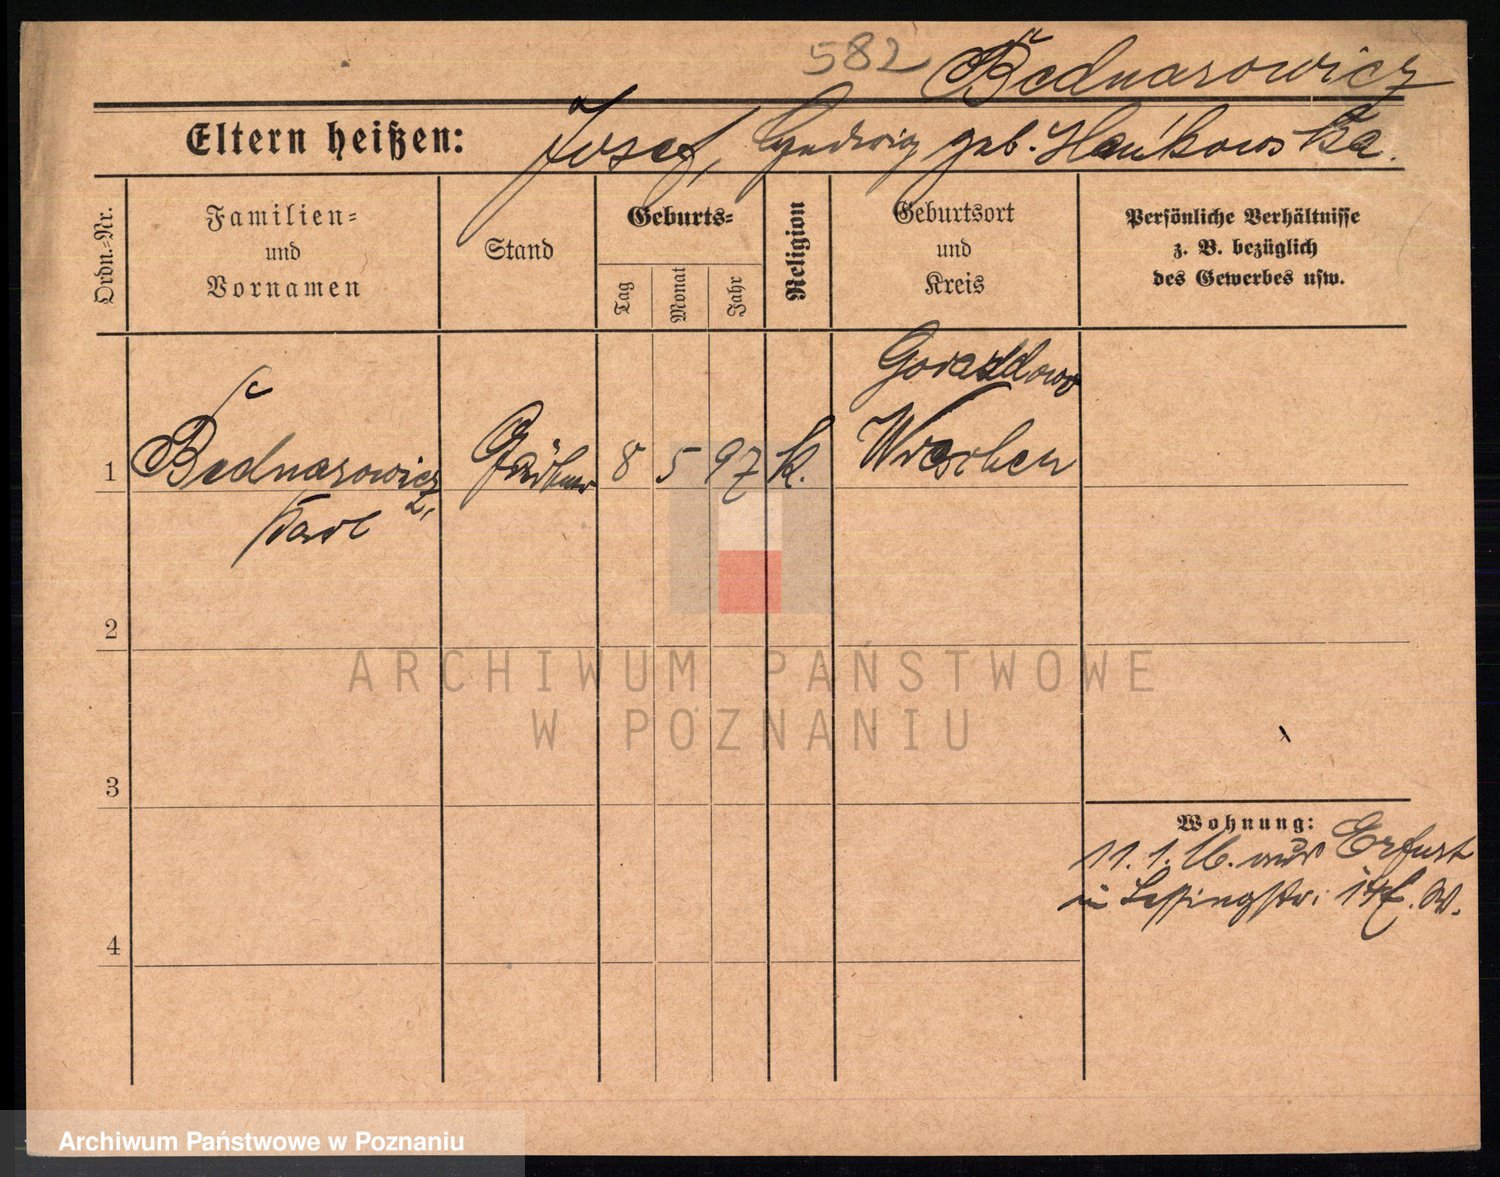 582 Bednarowicz
Eltern heißen: Josef, Hedwig geb. Hańkowska.
Ordn.-Nr.
Familien- und Vornamen
Stand
Geburts-
Tag
Monat
Jahr
Religion
Geburtsort und Kreis
Persönliche Verhältnisse
z. B. bezüglich
des Gewerbes usw.
Gorazdowo
1 Bednarowicz, 8 5 97 K. Wreschen
Karl
2
3
4
Wohnung:
11. 1. 16. aus Erfurt
in Lessingstr.
ARCHIWUM PAŃSTWOWE
W POZNANIU
Archiwum Państwowe w Poznaniu